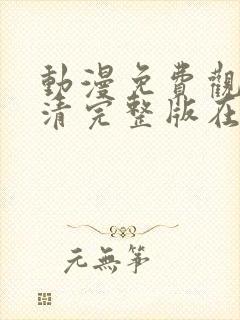 動漫免費觀
清完整版在
元無箏